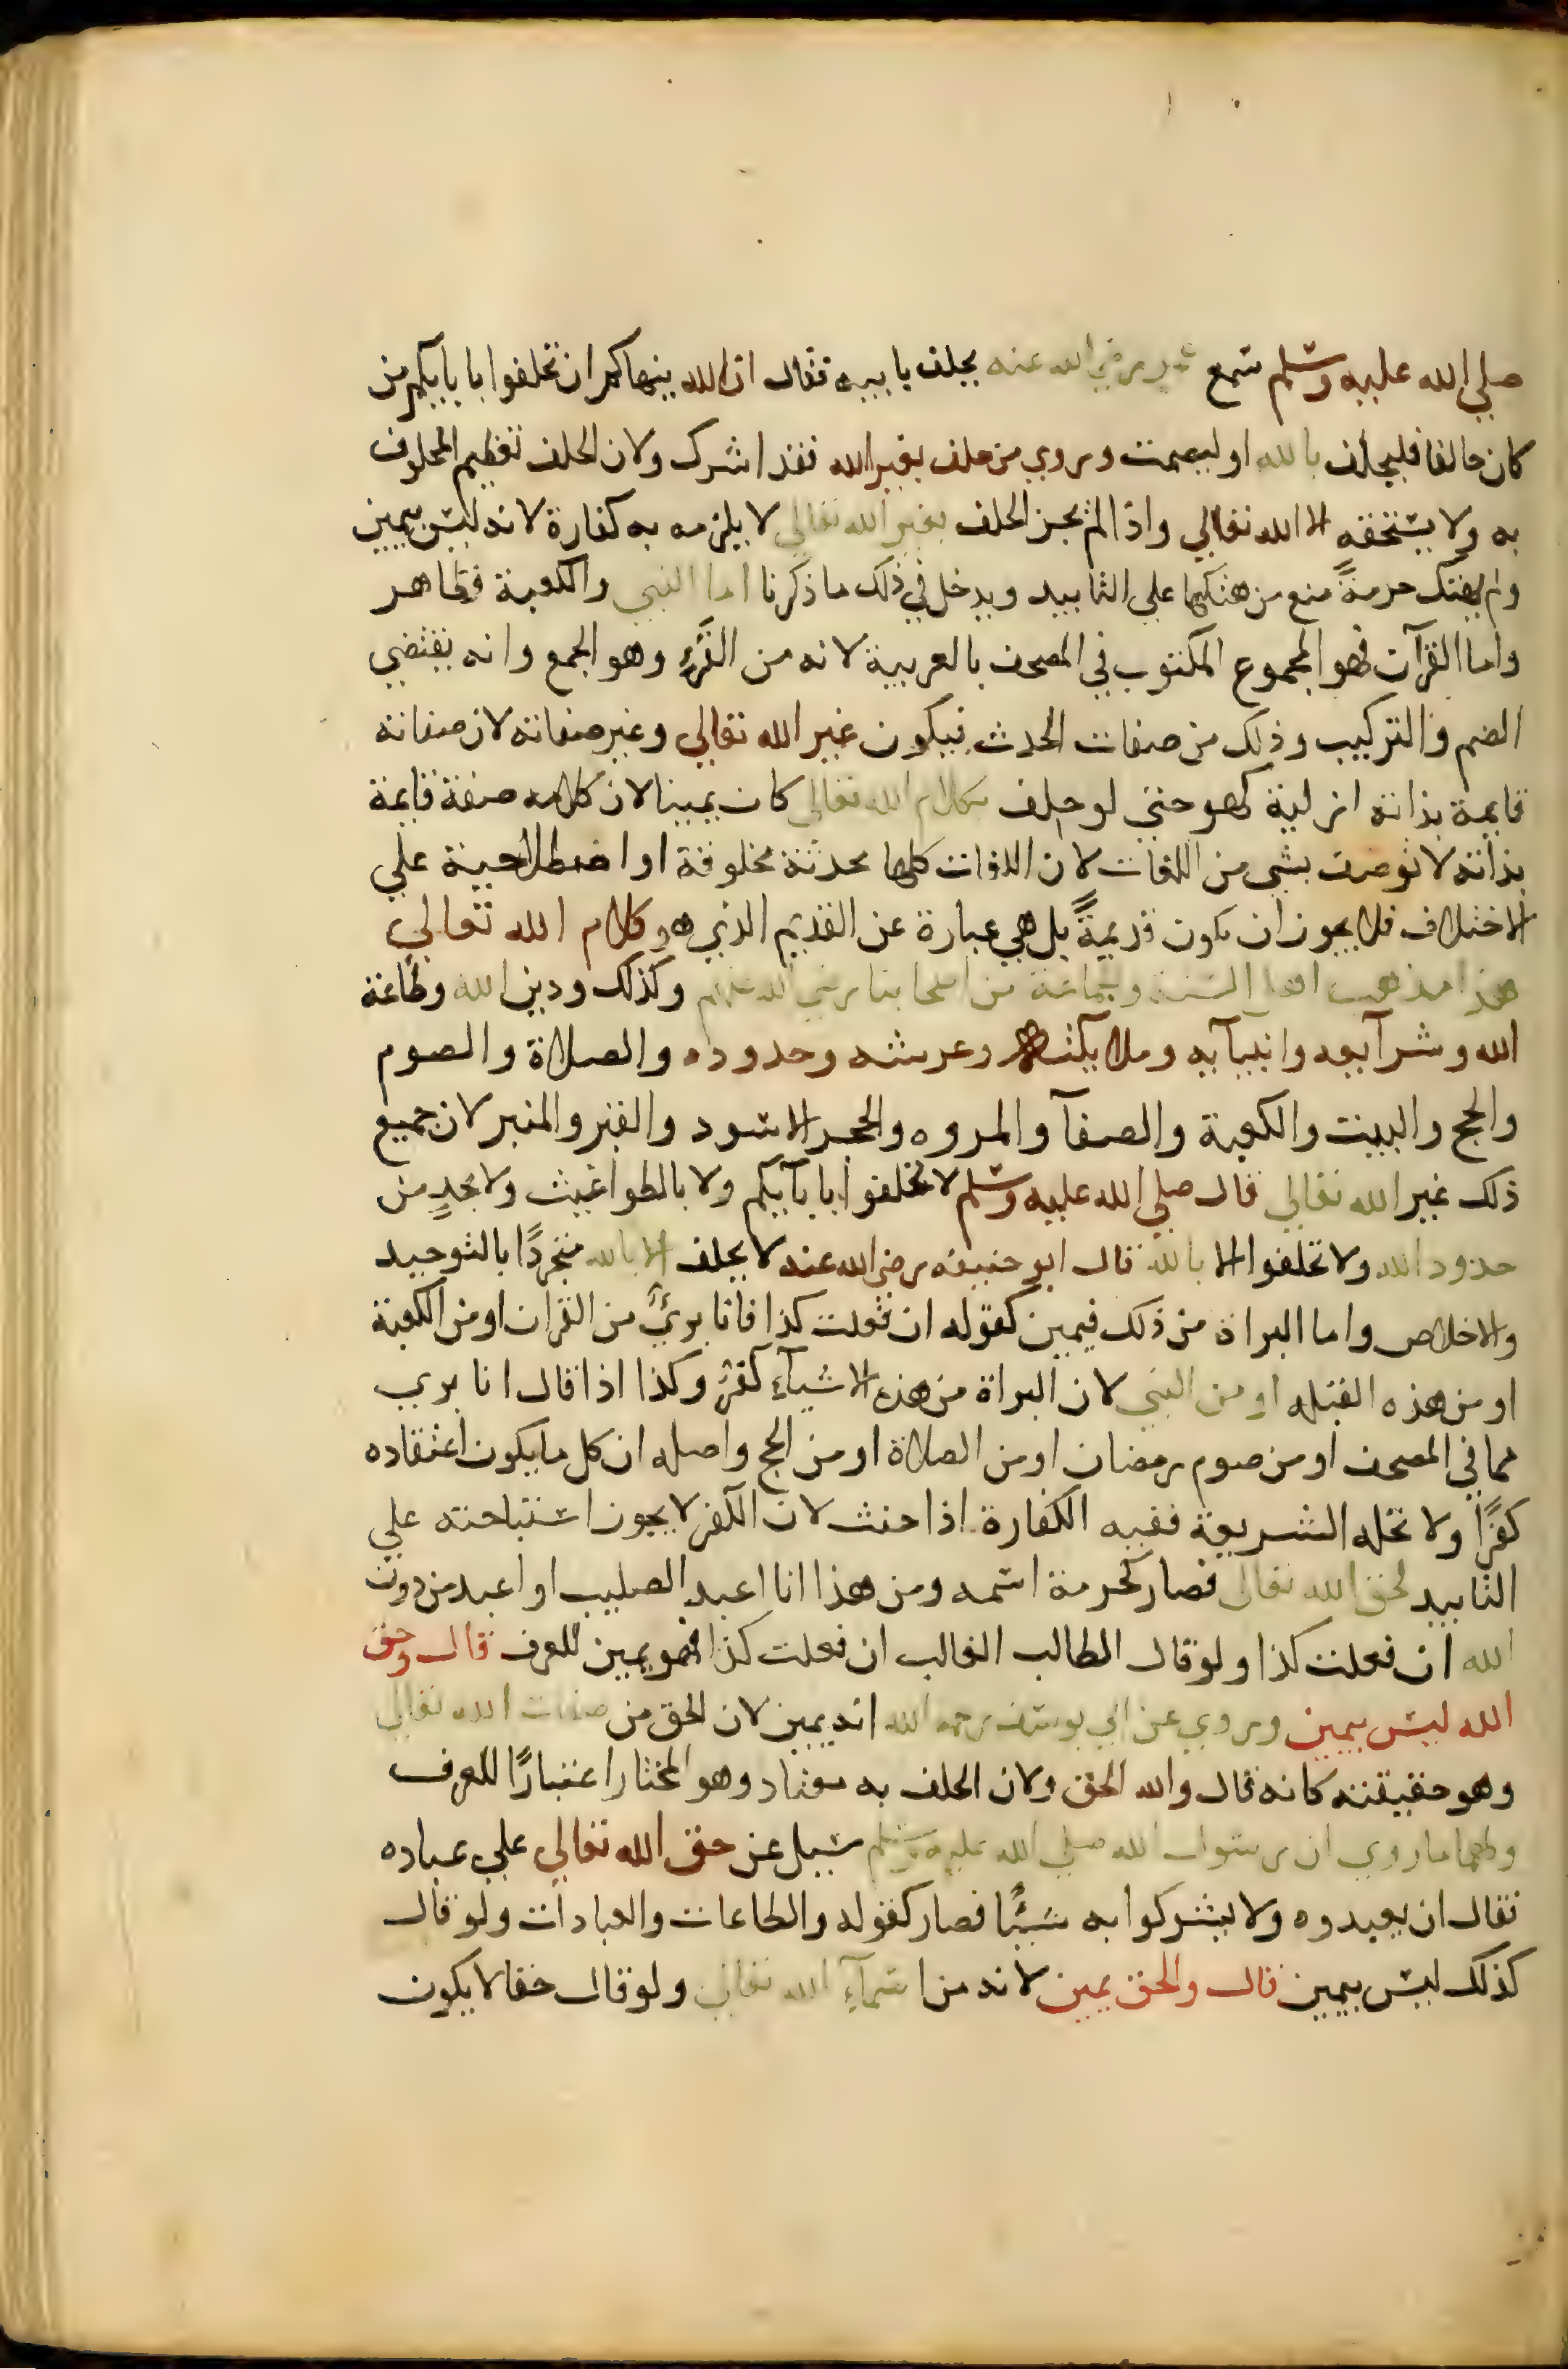 صلي الله عليه وسلم سمع عمر رضي الله عنه يحلف بابيه فقال ان الله ينهاكم ان تحلفوا بابايكم من
كان حالفا فليحلف بالله او ليصمت وروي من حلف بغير الله فقد اشرك ولان الحلف تعظيم المحلوف
به ولا يستحقه الا الله تعالي واذا لم يجز الحلف بغير الله تعالي لا يلزمه به كفارة لانه ليس بيمين
ولم يهتك حرمةً منع من هتكها علي التابيد ويدخل في ذلك ما ذكرنا اما النبي والكعبة فظاهر
واما القرآن فهو المجموع المكتوب في المصحف بالعربية لانه من القُرْءِ وهو الجمع وانه يقتضي
الضم والتركيب وذلك من صفات الحدث فيكون غير الله تعالي وغير صفاته لان صفاته
قايمة بذاته ازلية كهو حتي لو حلف بكلام الله تعالي كان يمينا لان كلامه صفة قايمة
بذاته لا توصف بشي من اللغات لان اللغات كلها محدثة مخلوقة او اصطلاحية علي
الاختلاف فلا يجوز ان تكون قديمةً بل هي عبارة عن القديم الذي هو كلام الله تعالي
هذا مذهب اهل السنة وجماعة من اصحابنا رضي الله عنهم وكذلك ودين الله وطاعة
الله وشرآيعه وانبيآيه وملايكته وعرشه وحدوده والصلاة والصوم
والحج والبيت والكعبة والصفآ والمروه والحجر الاسود والقبر والمنبر لان جميع
ذلك غير الله تعالي قال صلي الله عليه وسلم لا تحلفوا بابآيكم ولا بالطواغيت ولا بحدٍ من
حدود الله ولا تحلفوا الا بالله قال ابو حنيفه رضي الله عنه لا يحلف الا بالله متجردًا بالتوحيد
والاخلاص واما البراة من ذلك فيمين كقوله ان فعلت كذا فانا بريٌ من القران او من الكعبة
او من هذه القبله او من النبي لان البراة من هذه الاشيآءِ كفرٌ وكذا اذا قال انا بري
مما في المصحف او من صوم رمضان او من الصلاة او من الحج واصله ان كل ما يكون اعتقاده
كفرًا ولا تحله الشريعة ففيه الكفارة اذا حنث لان الكفر لا يجوز استباحته علي
التابيد لحق الله تعالي فصار كحرمة اسمه ومن هذا انا اعبد الصليب او اعبد من دون
الله ان فعلت كذا ولو قال الطالب الغالب ان فعلت كذا فهو يمين للعرف قال وحق
الله ليس بيمين وروي عن ابي يوسف رحمه الله انه يمين لان الحق من صفات الله تعالي
وهو حقيقته كانه قال والله الحق ولان الحلف به معتاد وهو المختار اعتبارًا للعرف
ولهما ما روي ان رسول الله صلي الله عليه وسلم سيل عن حق الله تعالي علي عباده
فقال ان يعبدوه ولا يشركوا به شيًا فصار كقوله والطاعات والعبادات ولو قال
كذلك ليس بيمين قال والحق يمين لانه من اسمآءِ الله تعالي ولو قال حقا لا يكون